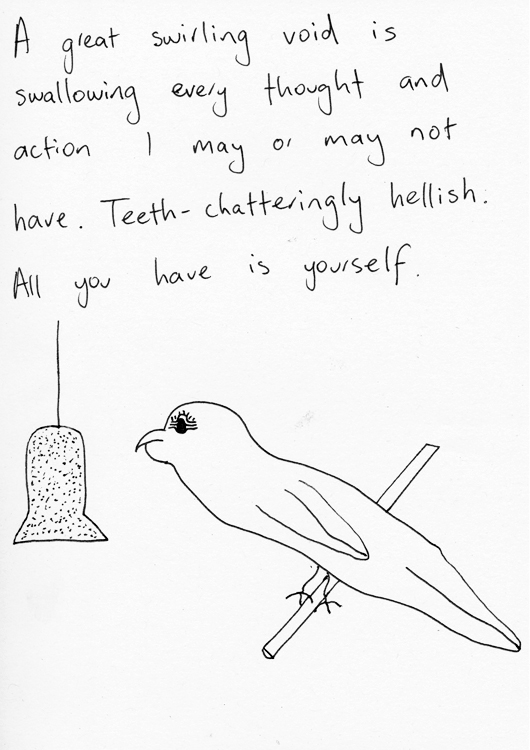 A great swirling void is
swallowing every thought and
action I may or may not
have. Teeth-chatteringly hellish.
All you have is yourself.